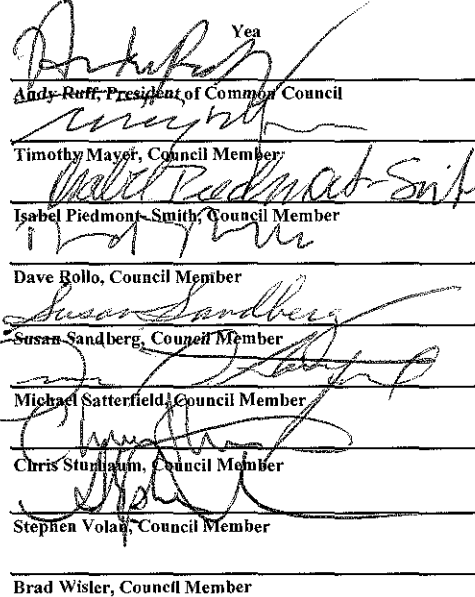 Yea
Andy Ruff, President of Common Council
Timothy Mayer, Council Member
Isabel Piedmont-Smit
Isabel Piedmont-Smith, Council Member
Dave Rollo, Council Member
Susan Sandberg
Susan Sandberg, Council Member
Michael Satterfield, Council Member
Chris Sturbaum, Council Member
Stephen Volan, Council Member
Brad Wisler, Council Member